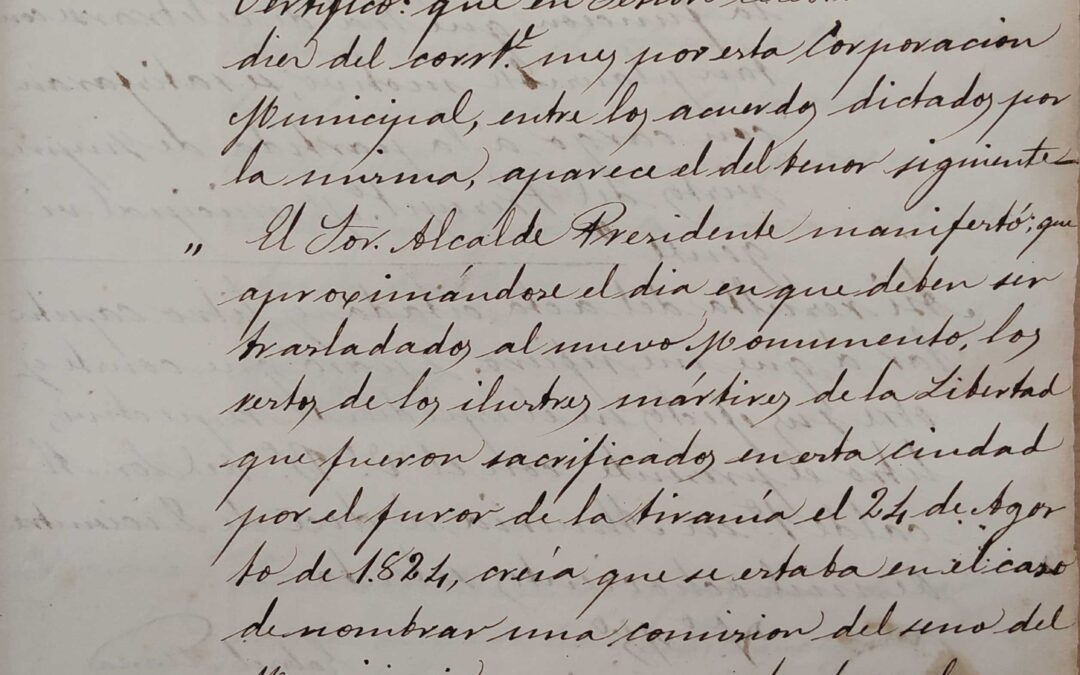 Certifico: que en sesion
dies del corrte. mes por esta Corporacion
Municipal, entre los acuerdos dictados por
la misma, aparece el del tenor siguiente
„ El Sor. Alcalde Presidente manifestó; que
aproximándose el dia en que deben ser
trasladados al nuevo Monumento, los
restos de los ilustres mártires de la Libertad
que fueron sacrificados en esta ciudad
por el furor de la tiranía el 24 de Agos
to de 1.824, creía que se estaba en el caso
de nombrar una comision del seno del